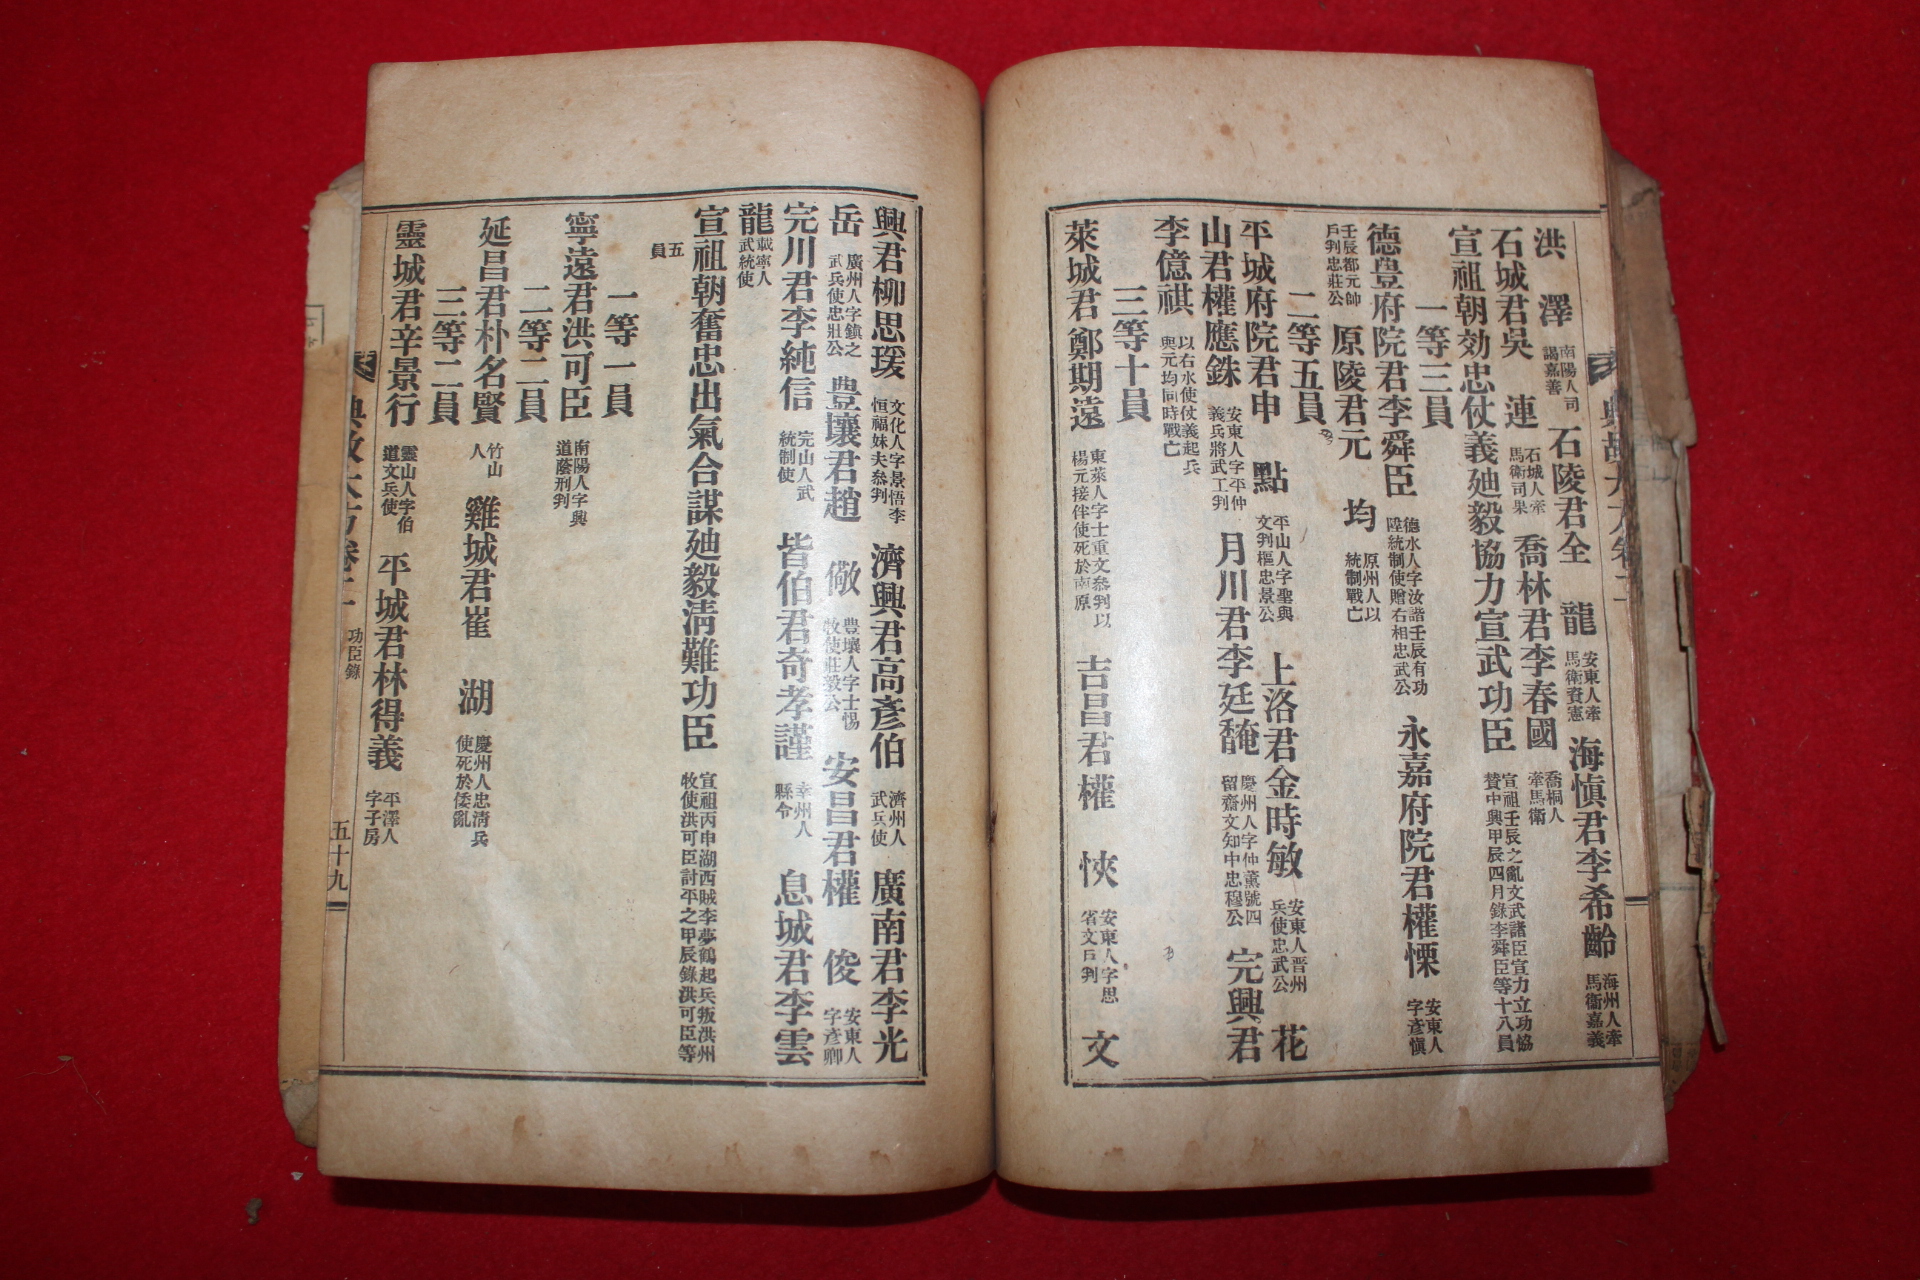 洪　澤 南陽人司謁嘉善 石陵君全　龍 安東人牽馬衛資憲 海愼君李希齡 海州人牽馬衛嘉義
石城君吳　連 石城人牽馬衛司果 喬林君李春國 喬桐人牽馬衛
宣祖朝効忠仗義迪毅協力宣武功臣 宣祖壬辰之亂文武諸臣宣力立功協贊中興甲辰四月錄李舜臣等十八員
一等三員
德豊府院君李舜臣 德水人字汝諧壬辰有功陞統制使贈右相忠武公 永嘉府院君權慄 安東人字彥愼
壬辰都元帥戶判忠莊公 原陵君元　均 原州人以統制戰亡
二等五員
平城府院君申　點 平山人字聖與文判樞忠景公 上洛君金時敏 安東人晋州兵使忠武公 花
山君權應銖 安東人字平仲義兵將武工判 月川君李廷馣 慶州人字仲薰號四留齋文知中忠穆公 完興君
李億祺 以右水使仗義起兵與元均同時戰亡
三等十員
萊城君鄭期遠 東萊人字士重文叅判以楊元接伴使死於南原 吉昌君權　悏 安東人字思省文戶判 文
興君柳思瑗 文化人字景悟李恒福妹夫叅判 濟興君高彥伯 濟州人武兵使 廣南君李光
岳 廣州人字鎭之武兵使忠壯公 豊壤君趙　儆 豊壤人字士惕牧使莊毅公 安昌君權　俊 安東人字彥卿
完川君李純信 完山人武統制使 皆伯君奇孝謹 幸州人縣令 息城君李雲
龍 載寧人武統使
宣祖朝奮忠出氣合謀迪毅淸難功臣 宣祖丙申湖西賊李夢鶴起兵叛洪州牧使洪可臣討平之甲辰錄洪可臣等
五員
一等一員
寧遠君洪可臣 南陽人字興道蔭刑判
二等二員
延昌君朴名賢 竹山人 雞城君崔　湖 慶州人忠淸兵使死於倭亂
三等二員
靈城君辛景行 靈山人字伯道文兵使 平城君林得義 平澤人字子房
功臣錄
五十九